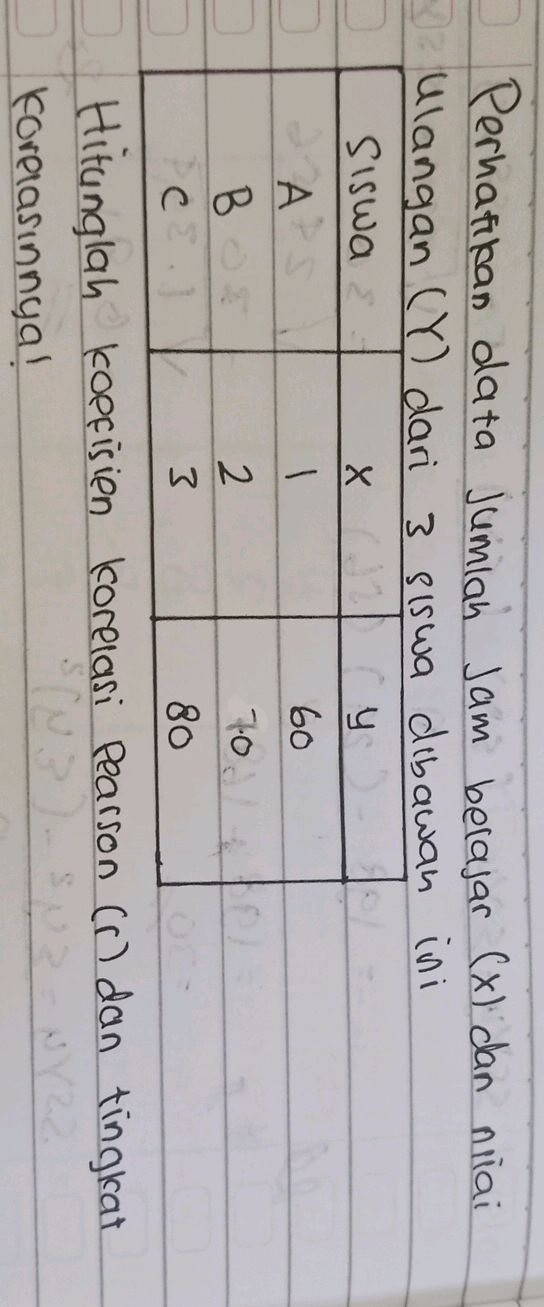 Perhatikan data Jumlah Jam belajar (x) dan nilai
ulangan (Y) dari 3 siswa dibawah ini
Siswa x y
A 1 60
B 2 70
C 3 80
Hitunglah koefisien korelasi Pearson (r) dan tingkat
korelasinnya!